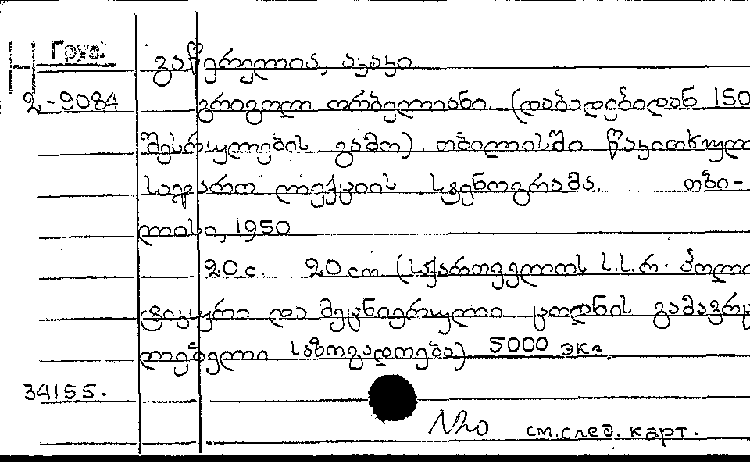 Груз.
გაწერელია, აკაკი
2-9084 გრიგოლ ორბელიანი. (დაბადებიდან 150
შესრულების გამო) თბილისში წაკითხულ
საჯარო ლექციის სტენოგრამა. თბი-
ლისი, 1950
20 с. 20 cm (საქართველოს ს.ს.რ. პოლი
ტიკური და მეცნიერული ცოდნის გამავრც
ლებელი საზოგადოება) 5000 экз.
34155.
см. след. карт.